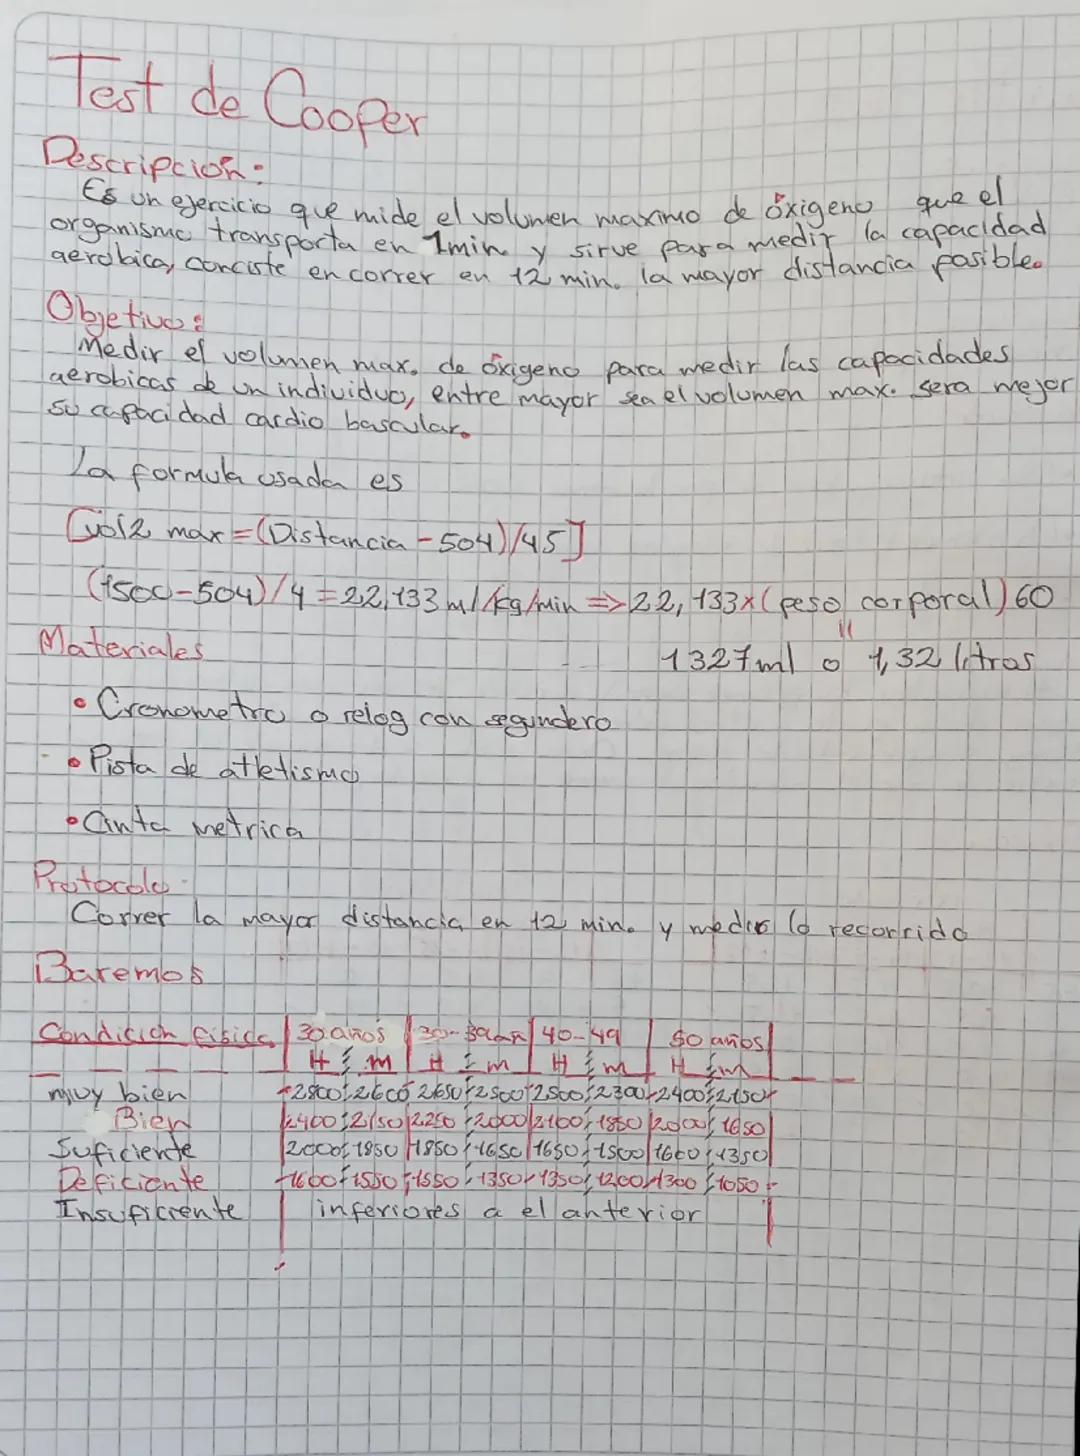 Test de Cooper
Descripcion:
Es un ejercicio que mide el volumen maximo de óxigeno que el
organismo transporta en 1min y sirve para medir la capacidad
aerobica, conciste en correr en 12 min. la mayor distancia posible.
Objetivo:
Medir el volumen max. de óxigeno para medir las capacidades
aerobicas de un individuo, entre mayor sea el volumen max. sera mejor
su capacidad cardio bascular.
La formula usada es
[vol2 max = (Distancia - 504)/45]
(1500-504)/4 = 22,133 ml/kg/min => 22,133 x (peso corporal) 60
Materiales
1327ml o 1,32 litros
• Cronometro o relog con segundero
• Pista de atletismo
• Cinta metrica
Protocolo
Correr la mayor distancia en 12 min. y medir lo recorrido
Baremos
Condicion fisica | 30 años | 30-39 añ | 40-49 | 50 años
H m H m H m H m
muy bien 2800 2600 2650 2500 2500 2300 2400 2150
Bien 2400 2150 2250 2000 2100 1850 2000 1650
Suficiente 2000 1850 1850 1650 1650 1500 1600 1350
Deficiente 1600 1550 1550 1350 1350 1200 1300 1050
Insuficiente inferiores a el anterior